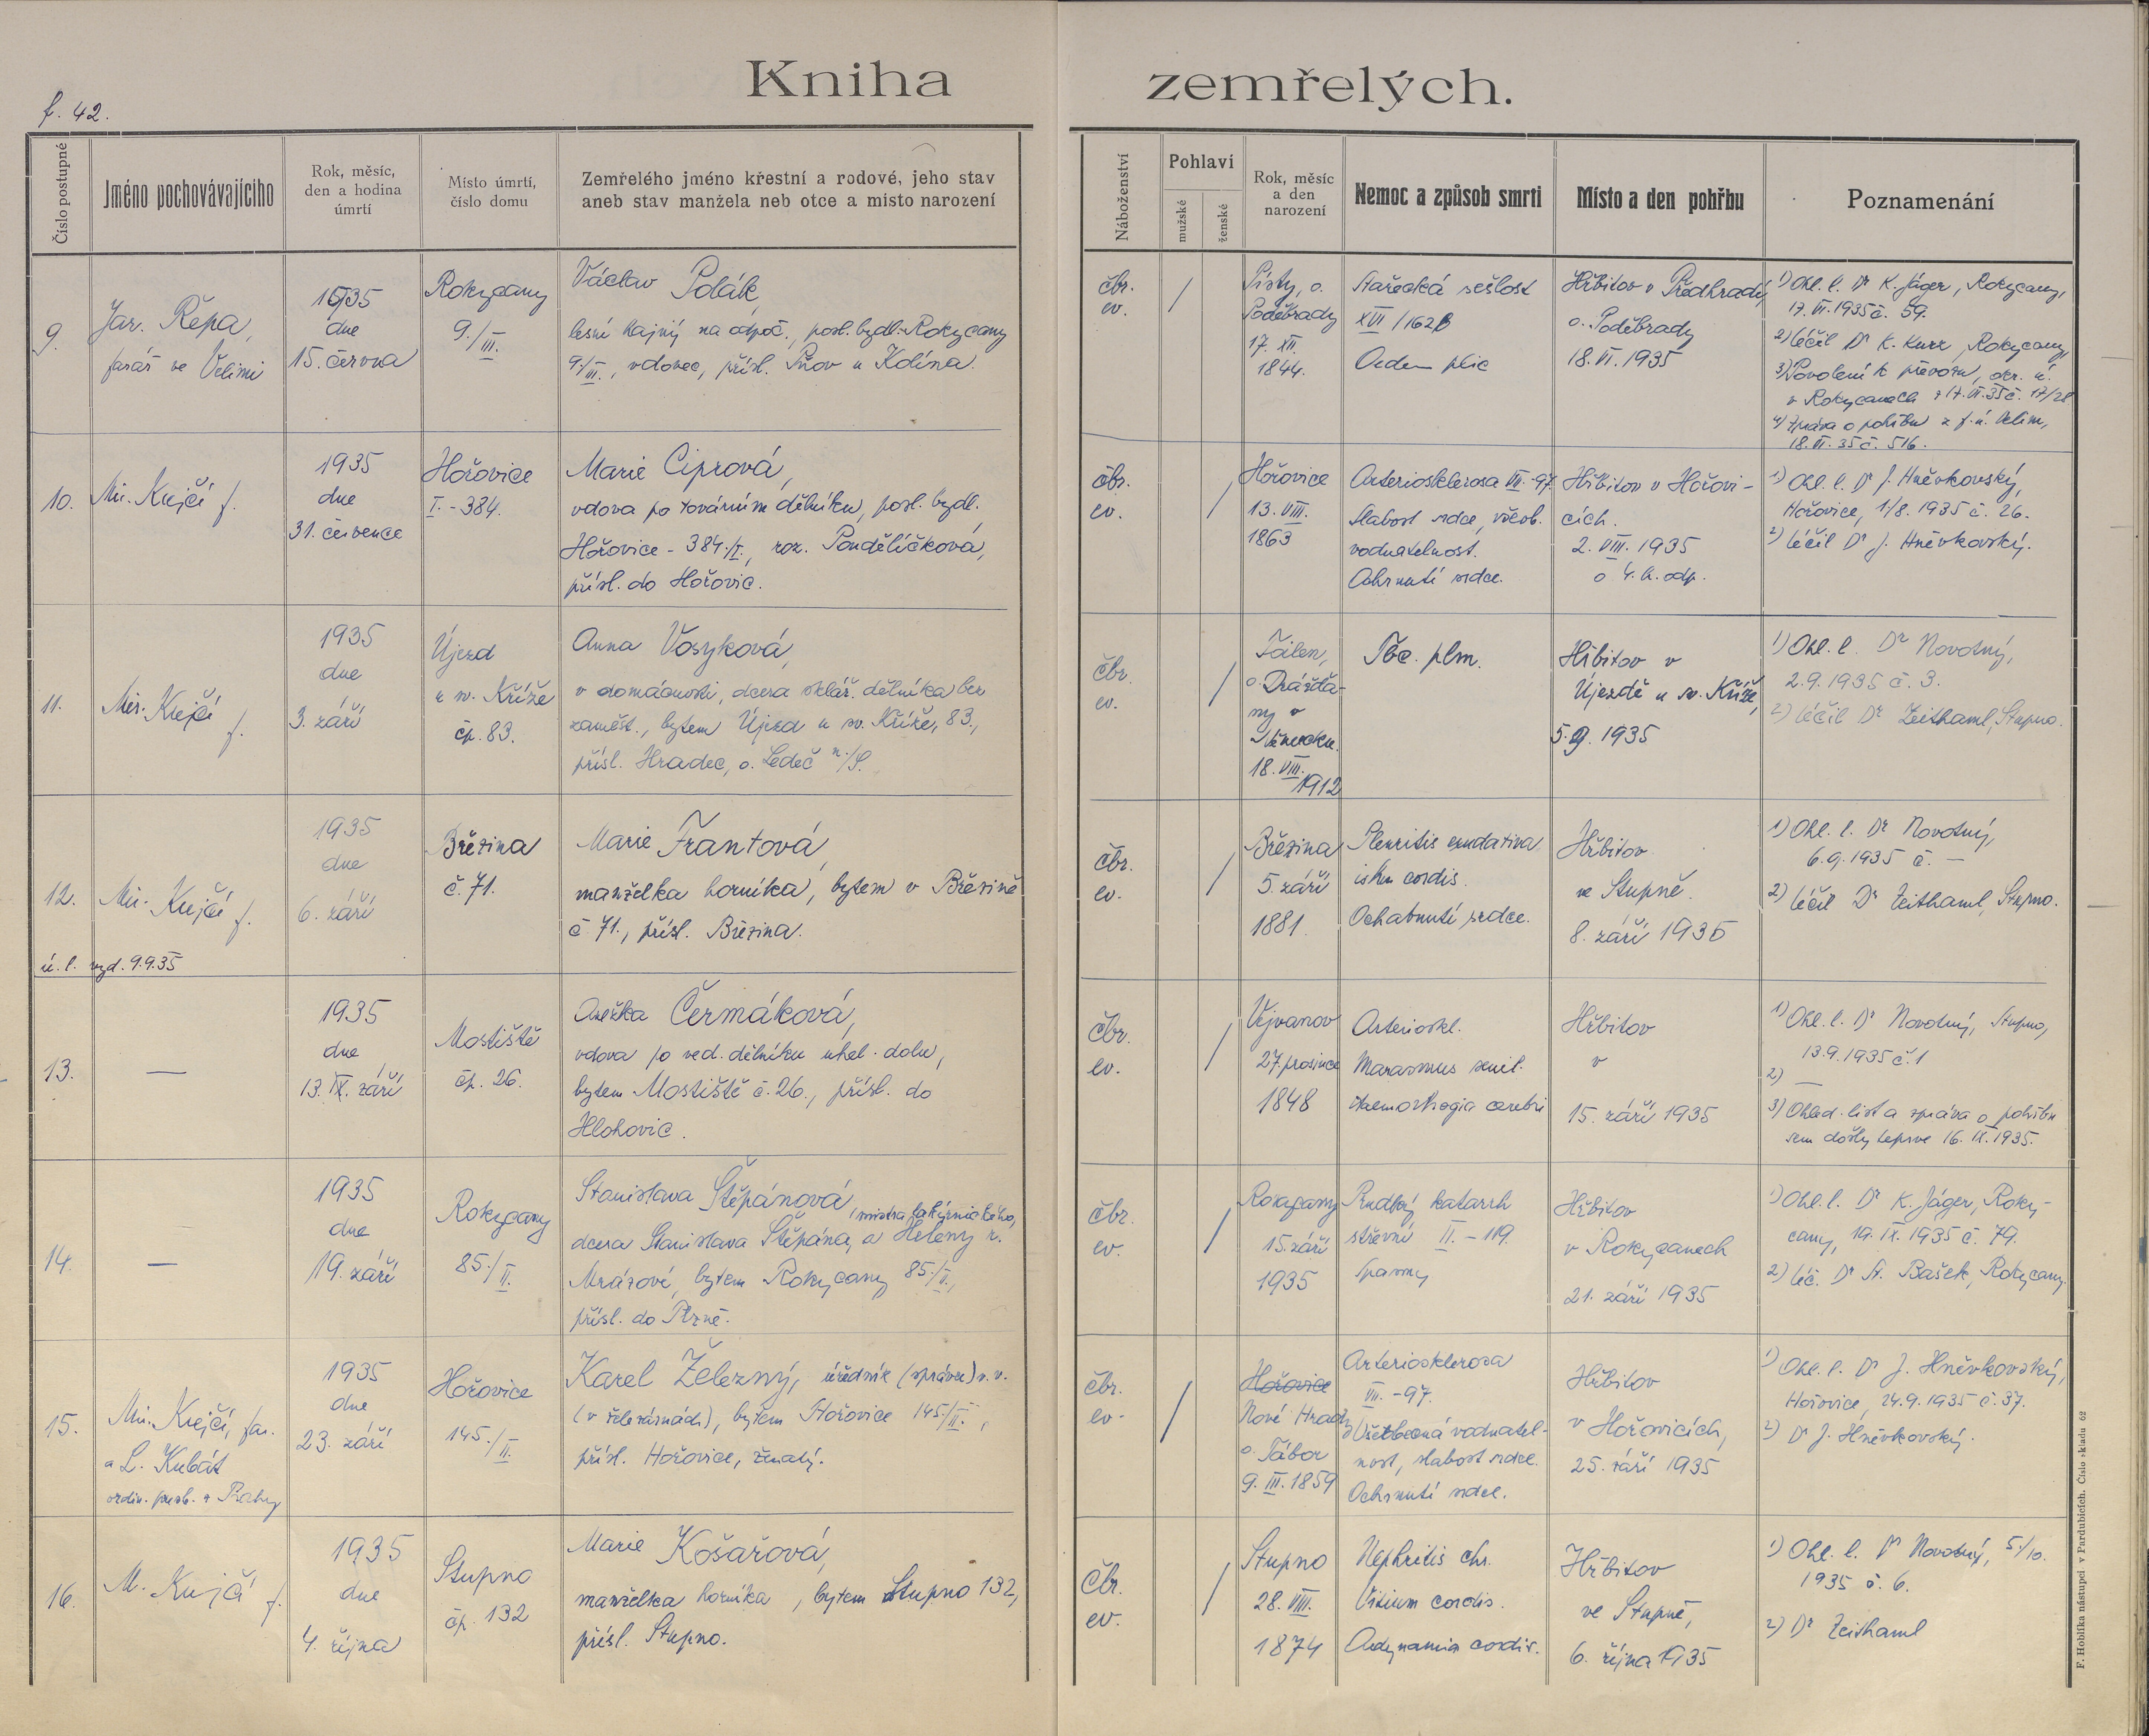 Kniha zemřelých.
f. 42.
Číslo postupné
Jméno pochovávajícího
Rok, měsíc,
den a hodina
úmrtí
Místo úmrtí,
číslo domu
Zemřelého jméno křestní a rodové, jeho stav
aneb stav manžela neb otce a místo narození
Náboženství
Pohlaví
mužské
ženské
Rok, měsíc
a den
narození
Nemoc a způsob smrti
Místo a den pohřbu
Poznamenání
9.
Jar. Řepa,
farář ve Velimi
1935
dne
15. června
Rokycany
9./III.
Václav Polák,
lesní hajný na odpoč., posl. bydl. Rokycany
9./III., vdovec, přísl. Pňov u Kolína.
čbr.
ev.
/
Písty, o.
Poděbrady
17. XII.
1844.
Stařecká sešlost
XVII/162B
Oedem plic
Hřbitov v Předhradí,
o. Poděbrady
18. VI. 1935
1) Ohl. l. Dr K. Jáger, Rokycany,
17. VI. 1935 č. 59.
2) léčil Dr K. Kurz, Rokycany,
3) Povolení k převozu, okr. ú.
v Rokycanech z 17. VI. 35 č. 17/28
4) Zpráva o pohřbu z f. ú. Velim,
18. VI. 35 č. 516.
10.
Mir. Krejčí f.
1935
dne
31. července
Hořovice
I. - 384.
Marie Ciprová,
vdova po továrním dělníku, posl. bydl.
Hořovice - 384./I., roz. Pondělíčková,
přísl. do Hořovic.
čbr.
ev.
/
Hořovice
13. VIII.
1863
Arteriosklerosa VII - 97.
slabost srdce, všeob.
vodnatelnost.
Ochrnutí srdce.
Hřbitov v Hořovi-
cích.
2. VIII. 1935
o 4. h. odp.
1) Ohl. l. Dr J. Hněvkovský,
Hořovice, 1/8. 1935 č. 26.
2) léčil Dr J. Hněvkovský.
11.
Mir. Krejčí
f.
1935
dne
3. září
Újezd
u sv. Kříže
čp. 83.
Anna Vosyková,
v domácnosti, dcera sklář. dělníka bez
zaměst., bytem Újezd u sv. Kříže, 83.,
přísl. Hradec, o. Ledeč n./S.
čbr.
ev.
/
o. Drážďa-
ny v
Německu.
18. VIII.
1912
Tbc. plm.
Hřbitov v
Újezdě u sv. Kříže,
5. 9. 1935
1) Ohl. l. Dr Novotný,
2. 9. 1935 č. 3.
2) léčil Dr Zeithaml, Stupno.
12.
Mir. Krejčí
f.
ú. l. vyd. 9.9.35
1935
dne
6. září
Březina
č. 71.
Marie Frantová,
manželka horníka, bytem v Březině
č 71., přísl. Březina.
čbr.
ev.
/
Březina
5. září
1881.
Pleuritis exudativa
cordis.
Ochabnutí srdce.
Hřbitov
ve Stupně.
8. září 1935
1) Ohl. l. Dr Novotný,
6. 9. 1935 č. —
2) léčil Dr Zeithaml, Stupno.
13.
—
1935
dne
13. IX. září
Mostiště
čp. 26.
Anežka Čermáková,
vdova po ved. dělníku uhel. dolu,
bytem Mostiště č. 26., přísl. do
Hlohovic.
čbr.
ev.
/
Vejvanov
27. prosince
1848
Arterioskl.
Marasmus senil.
Haemorrhagia cerebri
Hřbitov
v
15. září 1935
1) Ohl. l. Dr Novotný, Stupno,
13. 9. 1935 č. 1
2) —
3) Ohled. list a zpráva o pohřbu
sem došly teprve 16. IX. 1935.
14.
—
1935
dne
19. září
Rokycany
85./II.
Stanislava Štěpánová,
mistra lakýrnického,
dcera Stanislava Štěpána, a Heleny r.
Mrázové, bytem Rokycany 85./II.,
přísl. do Plzně.
čbr.
ev.
/
Rokycany
15. září
1935
Prudký katarrh
střevní II. - 119.
Spasmy
Hřbitov
v Rokycanech
21. září 1935
1) Ohl. l. Dr K. Jáger, Roky-
cany, 19. IX. 1935 č. 79.
2) léč. Dr St. Bašek, Rokycany.
15.
Mir. Krejčí, far.
a L. Kubát
ordin. presb. z Prahy
1935
dne
23. září
Hořovice
145./II.
Karel Železný, úředník (správce) v. v.
(v železárnách), bytem Hořovice 145./II.,
přísl. Hořovice, ženatý.
čbr.
ev.
/
Hořovice
Nové Hrady
o. Tábor
9. III. 1859
Arteriosklerosa
VII. - 97.
Všeobecná vodnatel-
nost, slabost srdce.
Ochrnutí srdce.
Hřbitov
v Hořovicích,
25. září 1935
1) Ohl. l. Dr J. Hněvkovský,
Hořovice, 24. 9. 1935 č. 37.
2) Dr J. Hněvkovský.
16.
M. Krejčí f.
1935
dne
4. října
Stupno
čp. 132
Marie Košařová,
manželka horníka, bytem Stupno 132,
přísl. Stupno.
čbr.
ev.
/
Stupno
28. VIII.
1874
Nephritis chr.
Vitium cordis.
Adynamia cordis.
Hřbitov
ve Stupně,
6. října 1935
1) Ohl. l. Dr Novotný, 5./10.
1935 č. 6.
2) Dr Zeithaml
F. Hoblíka nástupci v Pardubicích. Číslo skladu 62